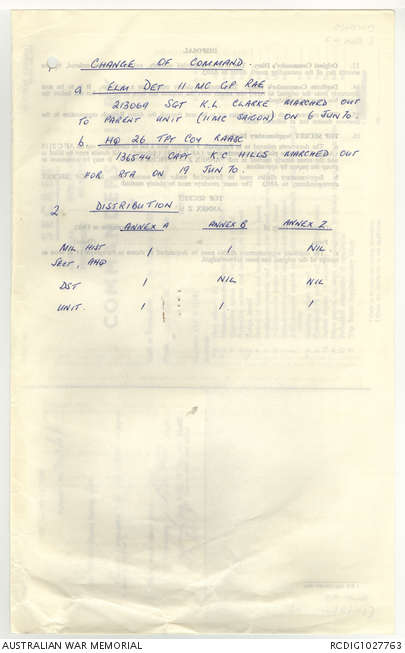 1. CHANGE OF COMMAND.
a. ELM DET 11 MC GP RAE
213069 SGT K.L CLARKE MARCHED OUT
TO PARENT UNIT (11MC SAIGON) ON 6 JUN 70.
b. HQ 26 TPT COY RAASC
136544 CAPT K.C HILLS MARCHED OUT
FOR RTA ON 19 JUN 70.
2. DISTRIBUTION
ANNEX A ANNEX B ANNEX Z
MIL HIST 1 1 NIL
SECT, AHQ
DST 1 NIL NIL
UNIT. 1 1 1
AUSTRALIAN WAR MEMORIAL
RCDIG1027763